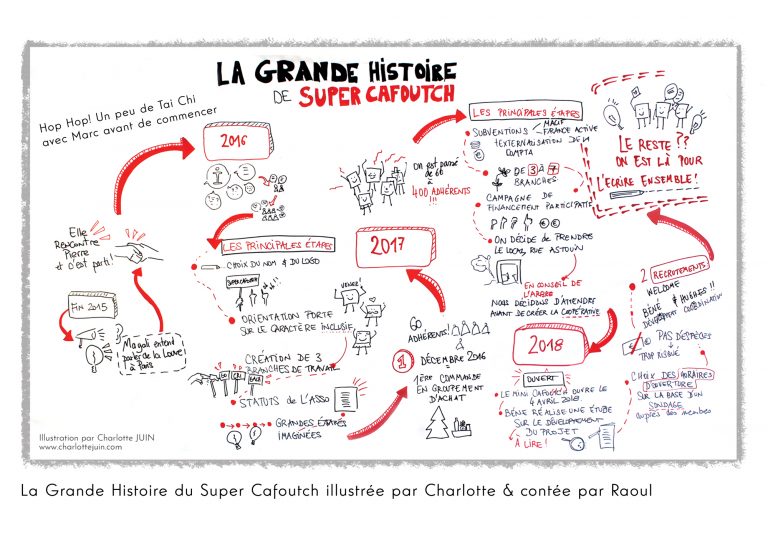 LA GRANDE HISTOIRE
DE SUPER CAFOUTCH
Hop Hop! Un peu de Tai Chi
avec Marc avant de commencer
FIN 2015
Magali entend
parler de la Louve
à Paris
Elle
RENCONTRE
Pierre
& c'est parti!
2016
LES PRINCIPALES ÉTAPES
CHOIX DU NOM & DU LOGO
SUPERCAFOUTCH
ORIENTATION FORTE
SUR LE CARACTÈRE INCLUSIF
VENEZ
CRÉATION DE 3
BRANCHES DE TRAVAIL
STATUTS DE L'ASSO
GRANDES ÉTAPES
IMAGINÉES
60
ADHÉRENTS!
1 DÉCEMBRE 2016
1ÈRE COMMANDE
EN GROUPEMENT
D'ACHAT
2017
On est passé
de 66
à
400 ADHÉRENTS!
LES PRINCIPALES ÉTAPES
SUBVENTIONS
MACIF
FRANCE ACTIVE
EXTERNALISATION DE LA
COMPTA
DE 3 À 7
BRANCHES
CAMPAGNE DE
FINANCEMENT PARTICIPATIF
ON DÉCIDE DE PRENDRE
LE LOCAL RUE ASTOUIN
EN CONSEIL DE
L'ARBRE
NOUS DÉCIDONS D'ATTENDRE
AVANT DE CRÉER LA COOPÉRATIVE
2018
OUVERT
LE MINI CAFOUTCH OUVRE LE
4 AVRIL 2018.
BÉNÉ RÉALISE UNE ÉTUDE
SUR LE DÉVELOPPEMENT
DU PROJET
À LIRE!
2 RECRUTEMENTS
WELCOME
BÉNÉ & HUGUES!!
DÉVELOPMENT COORDINATION
PAS D'ESPÈCES
TROP RISQUÉ
CHOIX DES HORAIRES
D'OUVERTURE
SUR LA BASE D'UN
SONDAGE
auprès des membres
LE RESTE ??
ON EST LÀ POUR
L'ÉCRIRE ENSEMBLE!
Illustration par Charlotte JUIN
www.charlottejuin.com
La Grande Histoire du Super Cafoutch illustrée par Charlotte & contée par Raoul